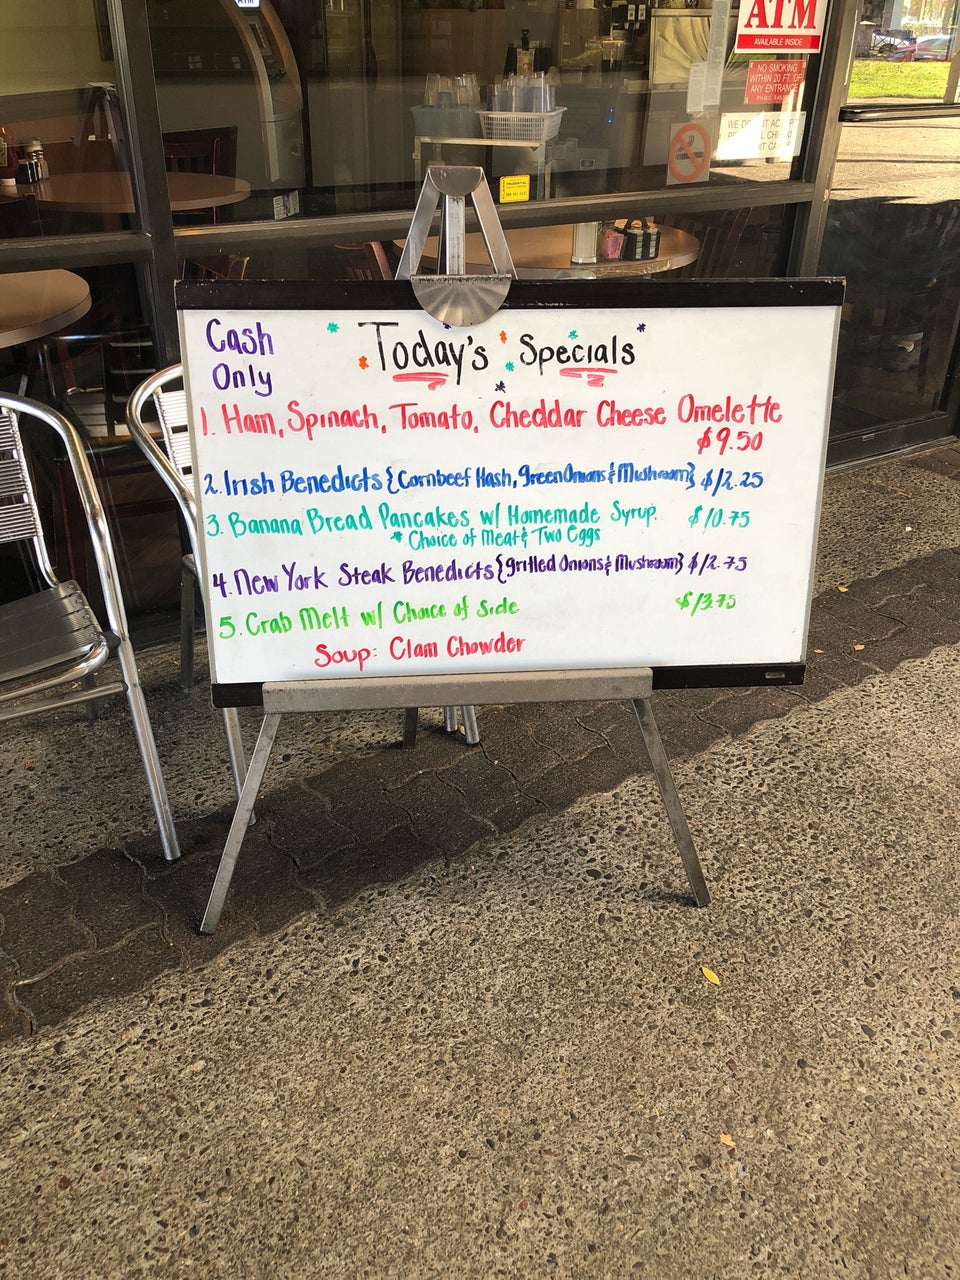 ATM
AVAILABLE INSIDE
NO SMOKING
WITHIN 20 FT. OF
ANY ENTRANCE
Cash
Only
Today's Specials
1. Ham, Spinach, Tomato, Cheddar Cheese Omelette
$9.50
2. Irish Benedicts {Cornbeef Hash, green Onions & Mushroom} $12.25
3. Banana Bread Pancakes w/ Homemade Syrup. $10.75
* Choice of Meat & Two Eggs
4. New York Steak Benedicts {grilled Onions & Mushroom} $12.75
5. Crab Melt w/ Choice of Side $13.75
Soup: Clam Chowder